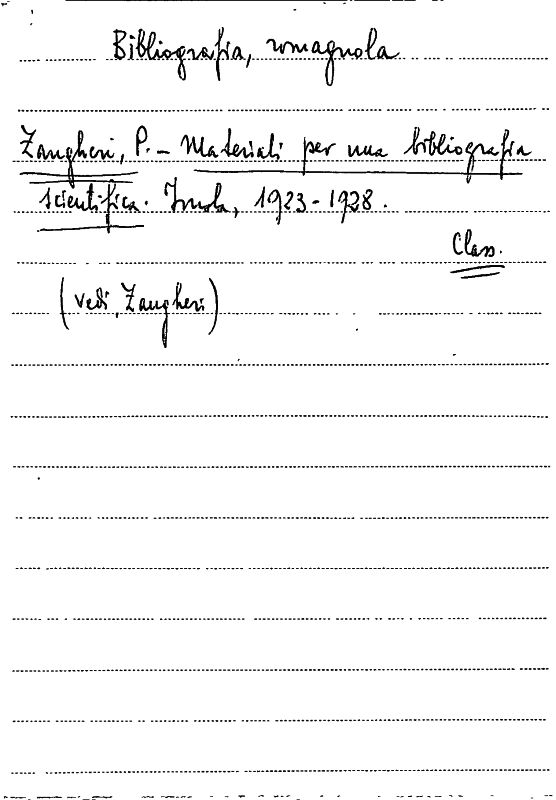 Bibliografia, romagnola
Zangheri, P. - Materiali per una bibliografia
scientifica. Imola, 1923-1928.
Class.
(vedi, Zangheri)